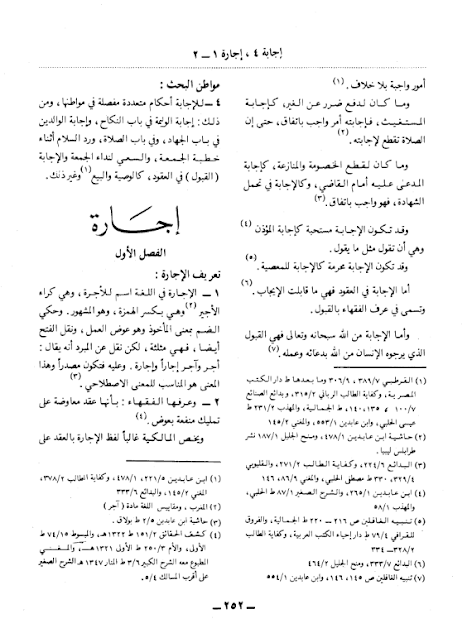 إجابة ٤ ، إجارة ١ ـ ٢
أمور واجبة بلا خلاف . (١)
وما كان لدفع ضرر عن الغير، كإجابة
المستغيث، فإجابته أمر واجب باتفاق، حتى إن
الصلاة تقطع لإجابته . (٢)
وما كان لقطع الخصومة والمنازعة، كإجابة
المدعى عليه أمام القاضي، وكالإجابة في تحمل
الشهادة، فهو واجب باتفاق . (٣)
وقد تكون الإجابة مستحبة كإجابة المؤذن (٤)
وهي أن تقول مثل ما يقول .
وقد تكون الإجابة محرمة كالإجابة للمعصية . (٥)
أما الإجابة في العقود فهي ما قابلت الإيجاب . (٦)
وتسمى في عرف الفقهاء بالقبول .
وأما الإجابة من الله سبحانه وتعالى فهي القبول
الذي يرجوه الإنسان من الله بدعائه وعمله . (٧)
(١) القرطبي ٣٨١/٧، ٣٠٦/٩ وما بعدها ط دار الكتب
المصرية، وكفاية الطالب الرباني ٣١٥/٢، وبدائع الصنائع
١٠٠/٧، ١٣٥، ١٤٠ ط الجمالية، والمهذب ٢٣١/٢ ط
عيسى الحلبي، وابن عابدين ٥٥٣/١، والمغني ١٤٥/٢
(٢) حاشية ابن عابدين ٤٧٨/١، ومنح الجليل ١٨٧/١ نشر
طرابلس ليبيا .
(٣) البدائع ٢٢٤/٦، وكفاية الطالب ٢٧١/٢، والقليوبي
٣٢٩/٤، ٣٣٠ ط مصطفى الحلبي، والمغني ٨٦/٩، ١٤٦
(٤) ابن عابدين ٢٦٥/١، والشرح الصغير ٨٧/١ ط الحلبي،
والمهذب ٥٨/١
(٥) تنبيه الغافلين ص ٢١٦ ـ ٢٢٠ ط الجمالية، والفروق
للقرافي ٧٩/٤ ط دار إحياء الكتب العربية، وكفاية الطالب
٣٢٨/٢ ـ ٣٣٤
(٦) البدائع ٣٣٣/٧، ومنح الجليل ٤٦٤/٢
(٧) تنبيه الغافلين ص ١٤٥، ١٤٦، وابن عابدين ٥٥٤/١
مواطن البحث :
٤ ـ للإجابة أحكام متعددة مفصلة في مواطنها، ومن
ذلك : إجابة الوليمة في باب النكاح، وإجابة الوالدين
في باب الجهاد، وفي باب الصلاة، ورد السلام أثناء
خطبة الجمعة، والسعي لنداء الجمعة والإجابة
(القبول) في العقود، كالوصية والبيع (١) وغير ذلك .
إجارة
الفصل الأول
تعريف الإجارة :
١ ـ الإجارة في اللغة اسم للأجرة، وهي كراء
الأجير (٢) وهي بكسر الهمزة، وهو المشهور . وحكي
الضم بمعنى المأخوذ وهو عوض العمل، ونقل الفتح
أيضا، فهي مثلثة، لكن نقل عن المبرد أنه يقال :
أجر وآجر إجاراً وإجارة . وعليه فتكون مصدراً وهذا
المعنى هو المناسب للمعنى الاصطلاحي . (٣)
٢ ـ وعرفها الفقهاء : بأنها عقد معاوضة على
تمليك منفعة بعوض . (٤)
ويخص المالكية غالباً لفظ الإجارة بالعقد على
(١) ابن عابدين ٢٢١/٥، ٤٧٨/١، وكفاية الطالب ٣٧٨/٢،
المغني ١٤٥/٢، والبدائع ٣٣٣/٦
(٢) المغرب ، ومقاييس اللغة مادة (أجر)
(٣) حاشية ابن عابدين ٢/٥ ط بولاق .
(٤) كشف الحقائق ١٥١/٢ ط ١٣٢٢هـ، والمبسوط ٧٤/١٥ ط
الأولى، والأم ٢٥٠/٣ ط الأولى ١٣٢١ هـ، والمغني
المطبوع معه الشرح الكبير ٣/٦ ط المنار ١٣٤٧ هـ الشرح الصغير
على أقرب المسالك ٥/٤ .
ـ ٢٥٢ ـ